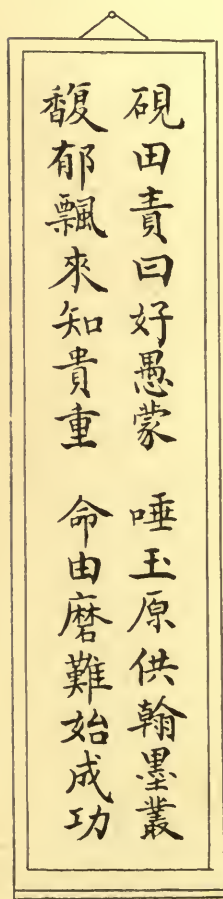 硯田責曰好愚蒙 唾玉原供翰墨叢
馥郁飄來知貴重 命由磨難始成功